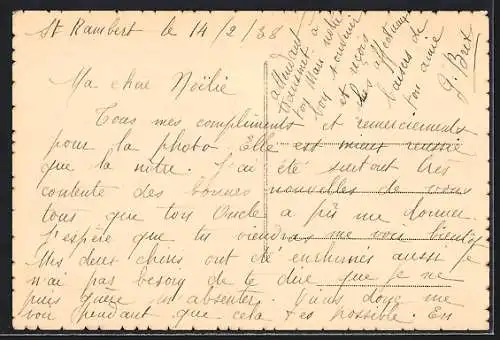 St Rambert le 14/2/38
Ma chère Noëlie
Tous mes compliments et remerciements
pour la photo. Elle est mieux reussie
que la nôtre. J'ai été surtout très
contente des bonnes nouvelles de vous
tous que ton Oncle a pu me donner.
J'espère que tu viendras me voir bientôt
Mes deux chéris ont été enrhumés aussi je
n'ai pas besoin de te dire que je ne
puis guère m'absenter. Viens donc me
voir pendant que cela t'es possible. En
attendant
transmet à
ton Mari notre
bon souvenir
et reçois
les affectueux
baisers de
ton amie
G. Bret